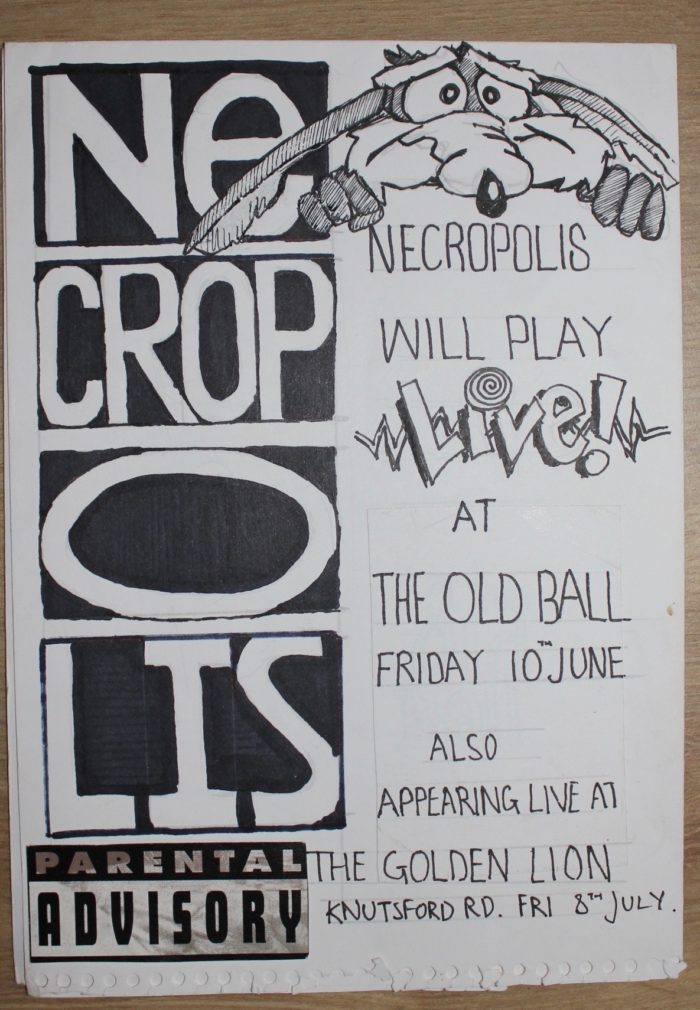 Ne
CROP
O
LIS
PARENTAL
ADVISORY
NECROPOLIS
WILL PLAY
Live!
AT
THE OLD BALL
FRIDAY 10TH JUNE
ALSO
APPEARING LIVE AT
THE GOLDEN LION
KNUTSFORD RD. FRI 8TH JULY.